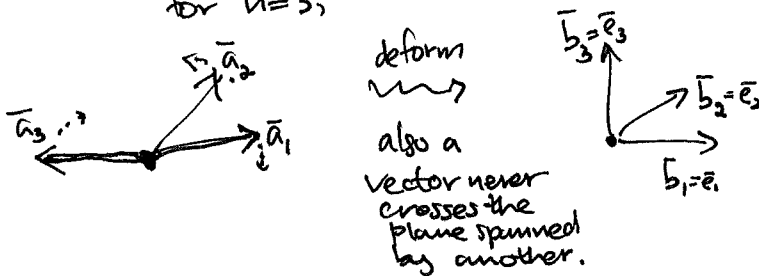 for n=3,
a̅₂
a̅₃
a̅₁
deform
also a
vector never
crosses the
plane spanned
by another.
b̅₃=e̅₃
b̅₂=e̅₂
b̅₁=e̅₁